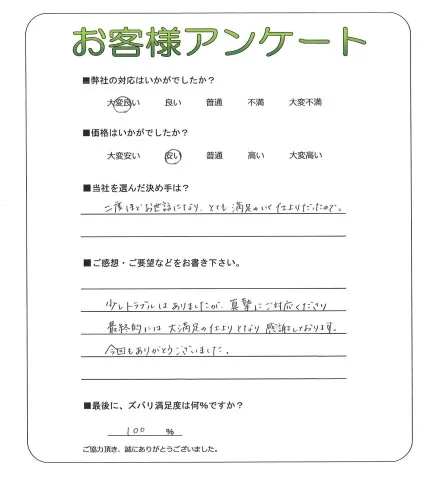 お客様アンケート
■弊社の対応はいかがでしたか？
大変良い 良い 普通 不満 大変不満
■価格はいかがでしたか？
大変安い 安い 普通 高い 大変高い
■当社を選んだ決め手は？
二度ほどお世話になり、とても満足のいく仕上りだったので。
■ご感想・ご要望などをお書き下さい。
少しトラブルはありましたが、真摯にご対応くださり
最終的には大満足の仕上りとなり感謝しております。
今回もありがとうございました。
■最後に、ズバリ満足度は何%ですか？
100 %
ご協力頂き、誠にありがとうございました。